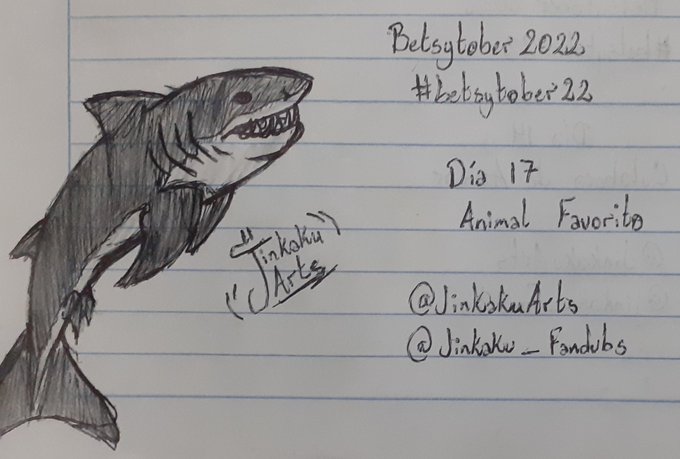 Betsytober 2022
#betsytober22
Día 17
Animal Favorito
Jinkaku
Arts
@JinkakuArts
@Jinkaku_Fandubs